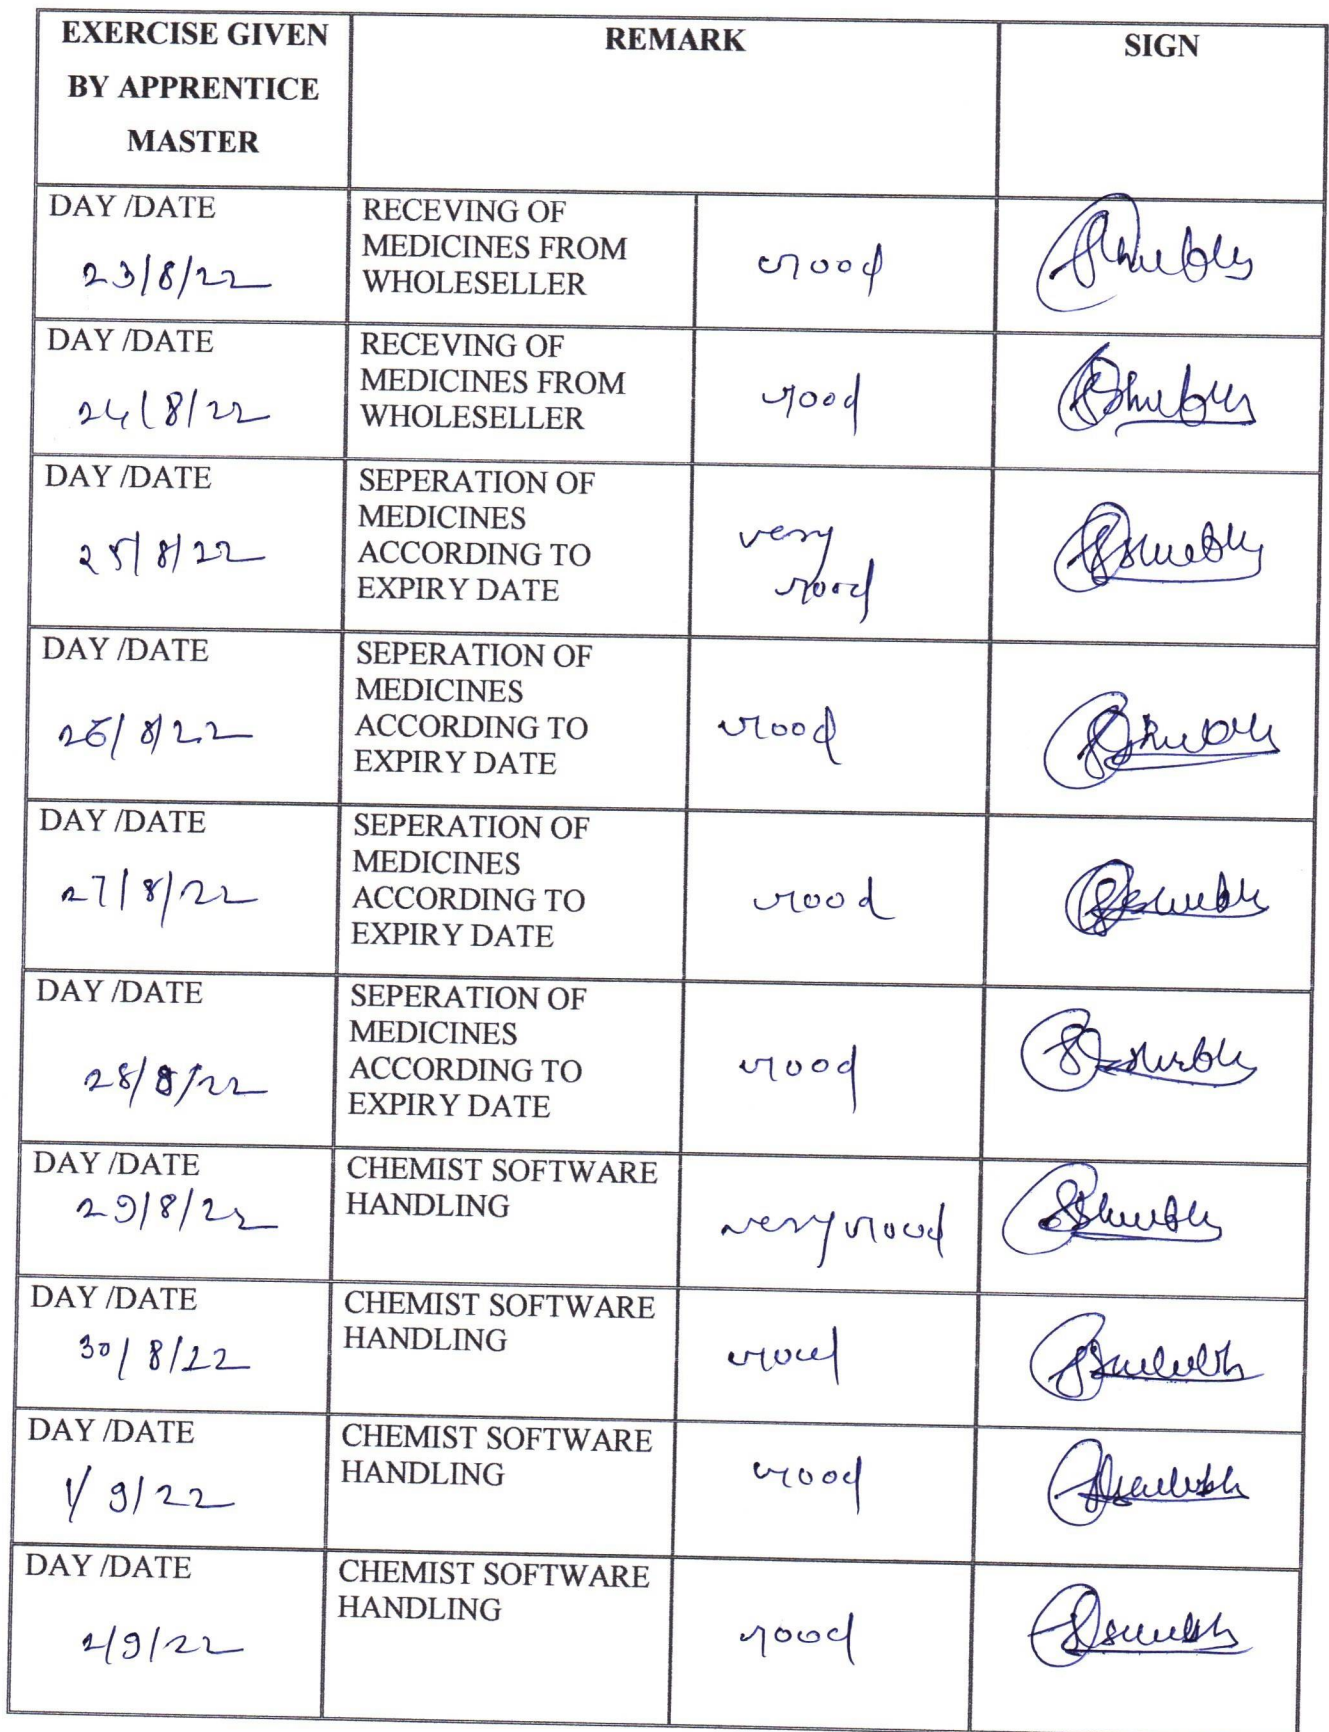 EXERCISE GIVEN
BY APPRENTICE
MASTER
REMARK
SIGN
DAY /DATE
23/8/22
RECEVING OF
MEDICINES FROM
WHOLESELLER
Good
DAY /DATE
24/8/22
RECEVING OF
MEDICINES FROM
WHOLESELLER
Good
DAY /DATE
25/8/22
SEPERATION OF
MEDICINES
ACCORDING TO
EXPIRY DATE
very
Good
DAY /DATE
26/8/22
SEPERATION OF
MEDICINES
ACCORDING TO
EXPIRY DATE
Good
DAY /DATE
27/8/22
SEPERATION OF
MEDICINES
ACCORDING TO
EXPIRY DATE
Good
DAY /DATE
28/8/22
SEPERATION OF
MEDICINES
ACCORDING TO
EXPIRY DATE
Good
DAY /DATE
29/8/22
CHEMIST SOFTWARE
HANDLING
very Good
DAY /DATE
30/8/22
CHEMIST SOFTWARE
HANDLING
Good
DAY /DATE
1/9/22
CHEMIST SOFTWARE
HANDLING
Good
DAY /DATE
2/9/22
CHEMIST SOFTWARE
HANDLING
Good